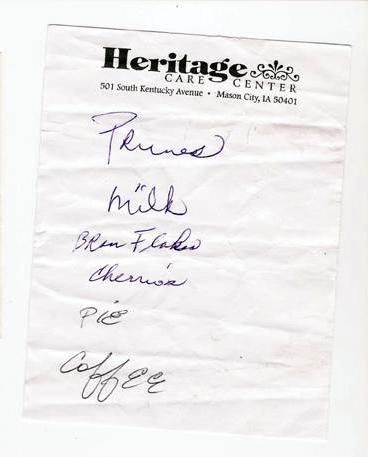 Heritage
CARE CENTER
501 South Kentucky Avenue • Mason City, IA 50401
Prunes
Milk
Bran Flakes
Cherrio's
PiE
COffEE